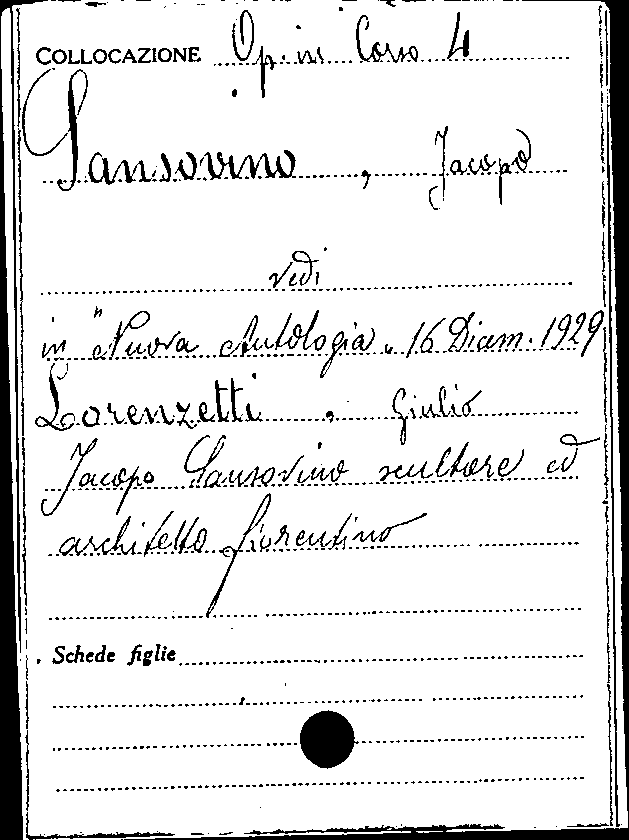 COLLOCAZIONE Op. in Corso 4
Sansovino, Jacopo
vedi
in "Nuova Antologia" 16 Dicem. 1929
Lorenzetti, Giulio
Jacopo Sansovino scultore ed
architetto fiorentino
Schede figlie